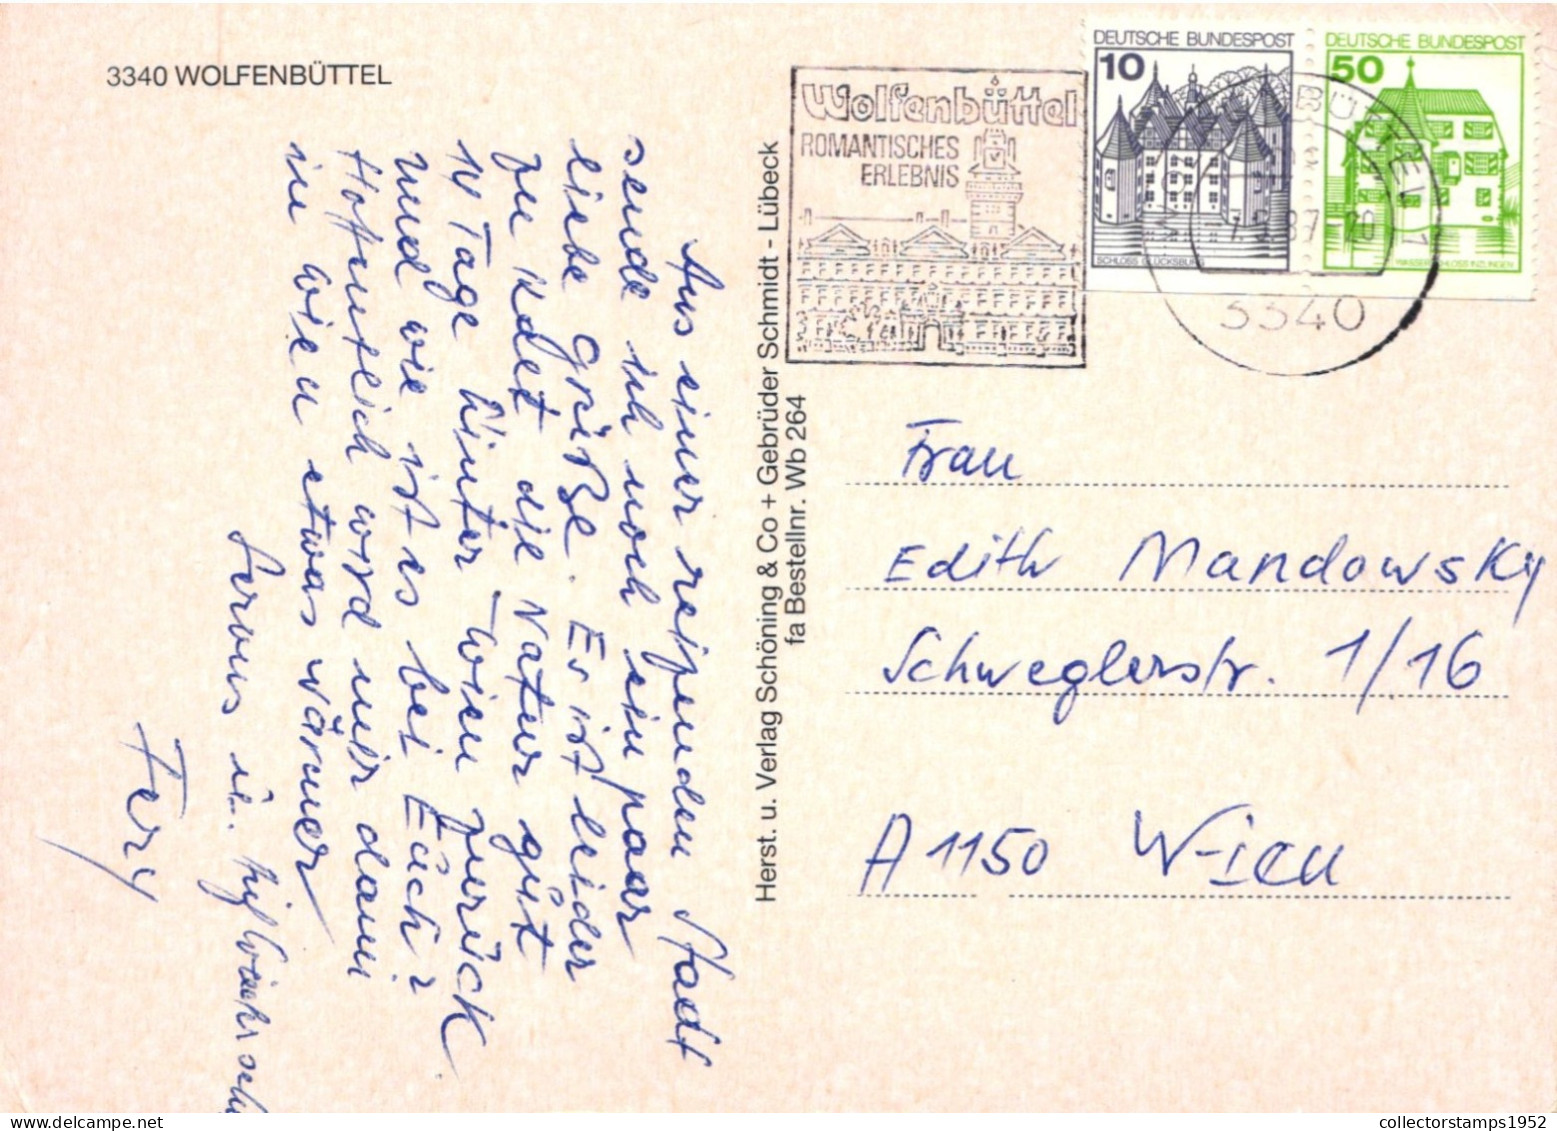 3340 WOLFENBÜTTEL
Aus einer reizenden Stadt
sende ich noch ein paar
liebe Grüße. Es ist leider
zu kalt die Natur gut
14 Tage hinter Wien zurück.
und wie ist es bei Euch?
Hoffentlich wird mir dann
in Wien etwas wärmer
Servus u. auf Wiedersehn
Fery
Herst. u. Verlag Schöning & Co + Gebrüder Schmidt - Lübeck
fa Bestellnr. Wb 264
Wolfenbüttel
ROMANTISCHES
ERLEBNIS
DEUTSCHE BUNDESPOST
10
SCHLOSS GLÜCKSBURG
DEUTSCHE BUNDESPOST
50
WASSERSCHLOSS INZLINGEN
3340
Frau
Edith Mandowsky
Schweglerstr. 1/16
A 1150 Wien
collectorstamps1952